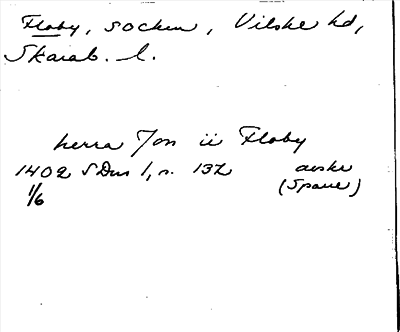 Floby, socken, Vilske hd,
Skarab. l.
herra Jon ii Floby
1402 SDns 1, s. 132 avskr
1/6 (Sparre)